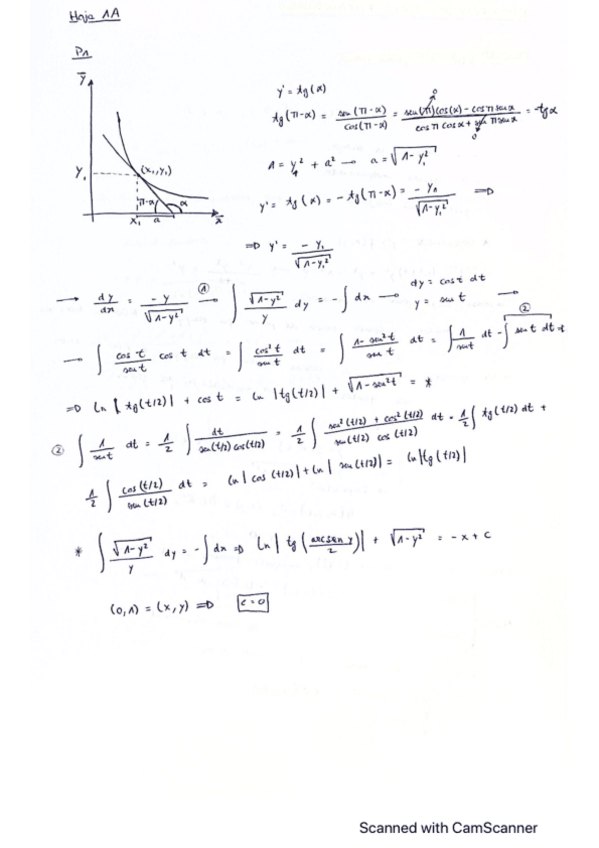 Hoja 1A
P1
y
y' = tg(α)
tg(π-α) = sen(π-α)/cos(π-α) = (sen(π)cos(α) - cosπ senα)/(cosπ cosα + senπ senα) = -tgα
0
0
1 = y₁² + a² → a = √(1-y₁²)
(x₁, y₁)
y₁
π-α
α
x₁
a
x
y' = tg(α) = -tg(π-α) = -y₁/√(1-y₁²) ⇒
⇒ y' = -y₁/√(1-y₁²)
→ dy/dx = -y/√(1-y²) ①→ ∫ √(1-y²)/y dy = -∫ dx → dy = cos t dt
y = sen t →
→ ∫ cos t/sen t cos t dt = ∫ cos² t/sen t dt = ∫ (1 - sen² t)/sen t dt = ∫ 1/sen t dt - ∫ sen t dt =
②
⇒ ln |tg(t/2)| + cos t = ln |tg(t/2)| + √(1-sen² t) = *
② ∫ 1/sen t dt = 1/2 ∫ dt/(sen(t/2) cos(t/2)) = 1/2 ∫ (sen²(t/2) + cos²(t/2))/(sen(t/2) cos(t/2)) dt = 1/2 ∫ tg(t/2) dt +
1/2 ∫ cos(t/2)/sen(t/2) dt = ln|cos(t/2)| + ln|sen(t/2)| = ln|tg(t/2)|
* ∫ √(1-y²)/y dy = -∫ dx ⇒ ln |tg(arcsen y/2)| + √(1-y²) = -x + c
(0,1) = (x,y) ⇒ c = 0
Scanned with CamScanner